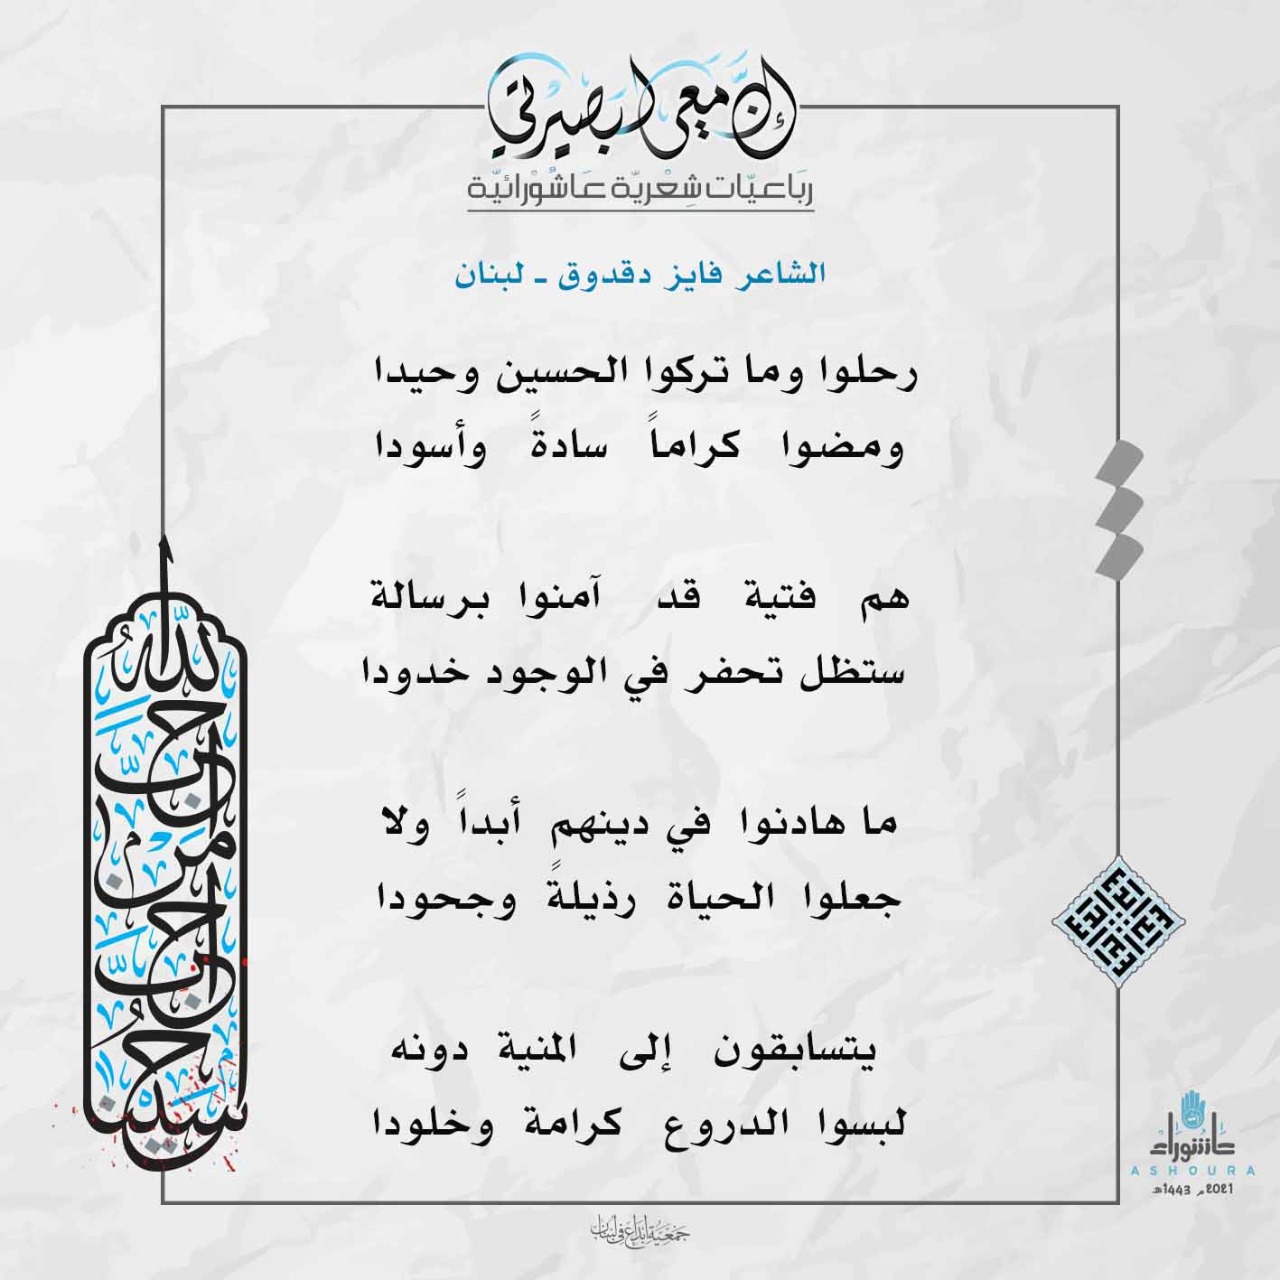 إنَّ معي لبصيرتي
ربَاعيّات شِعْريّة عَاشُوْرائيّة
الشاعر فايز دقدوق ـ لبنان
رحلوا وما تركوا الحسين وحيدا
ومضوا كراماً سادةً وأسودا
هم فتية قد آمنوا برسالة
ستظل تحفر في الوجود خدودا
ما هادنوا في دينهم أبداً ولا
جعلوا الحياة رذيلةً وجحودا
يتسابقون إلى المنية دونه
لبسوا الدروع كرامة وخلودا
أحبَّ اللهُ من أحبَّ حُسَيْناً
عاشوراء
ASHOURA
2021م 1443هـ
جمعية إبداع في لبنان